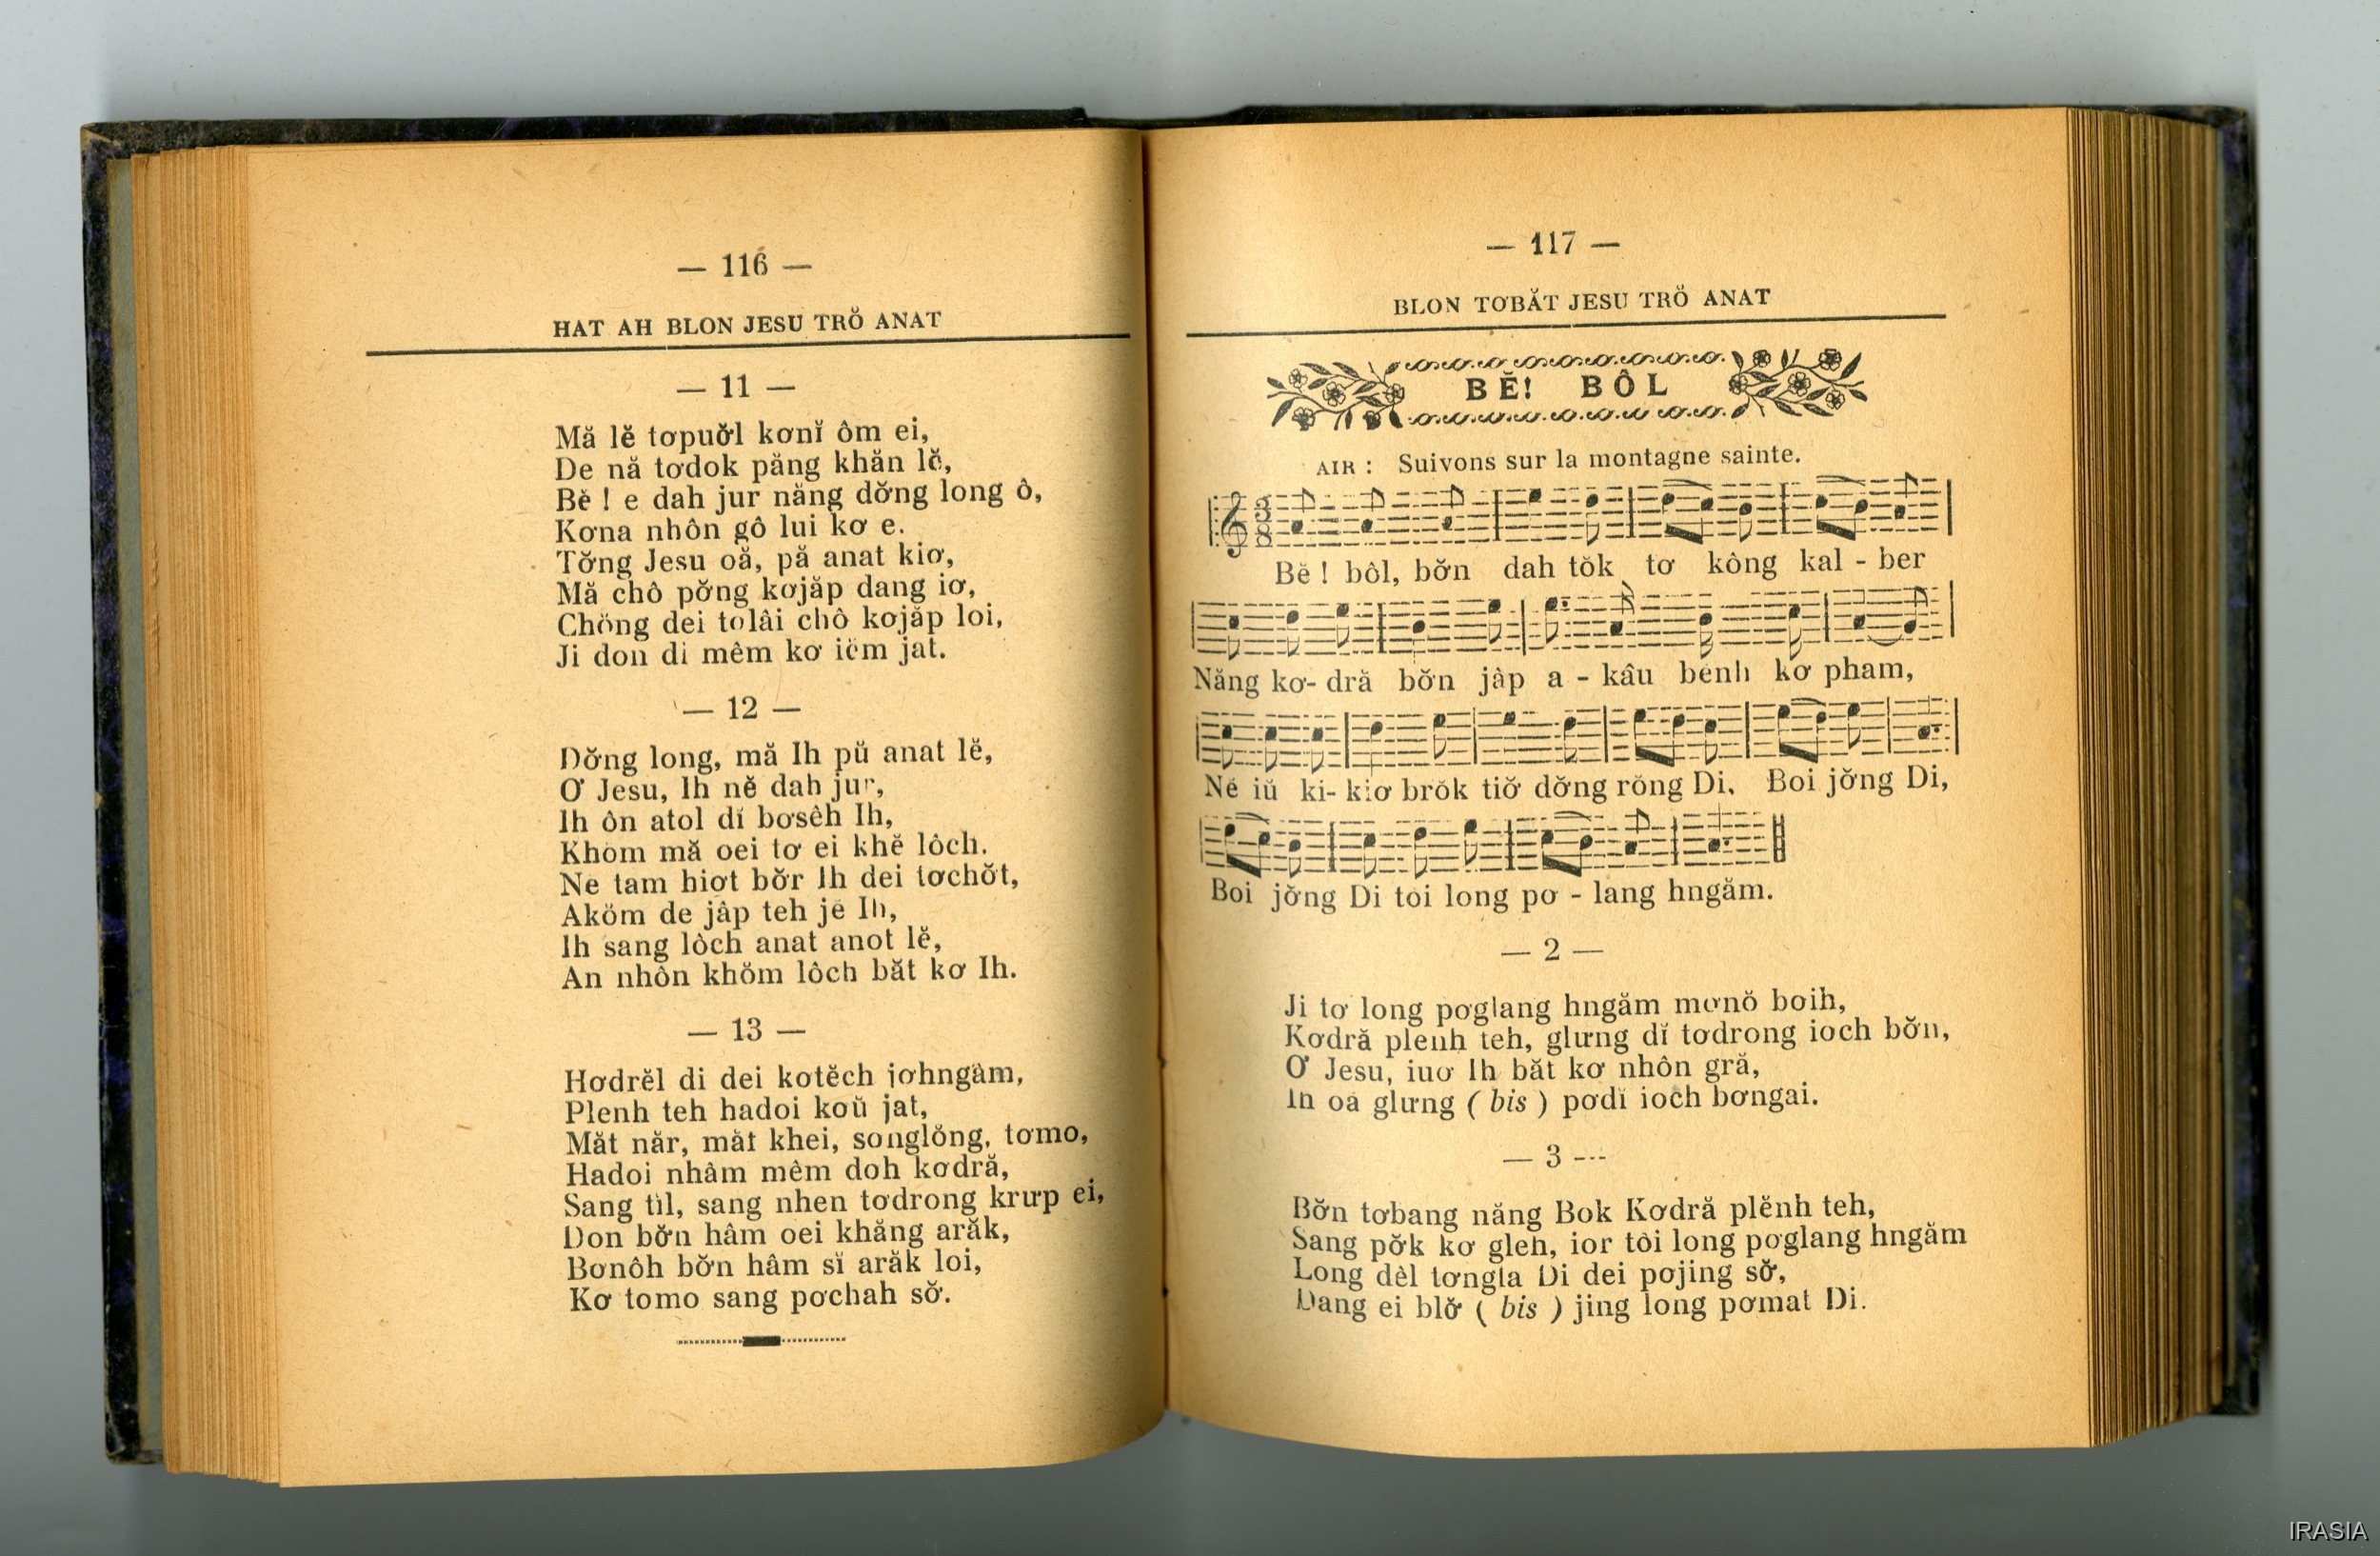 — 116 —
HAT AH BLON JESU TRŎ ANAT
— 11 —
Mă lĕ tơpuơ̆l kơnĭ ôm ei,
De nă tơdok păng khăn lĕ,
Bĕ ! e dah jur năng dơ̆ng long ô,
Kơna nhôn gô lui kơ e.
Tơ̆ng Jesu oă, pă anat kiơ,
Mă chô pơ̆ng kơjăp dang iơ,
Chŏng dei tolâi chô kơjăp loi,
Ji don di mêm kơ iĕm jat.
— 12 —
Dơ̆ng long, mă Ih pŭ anat lĕ,
Ơ Jesu, Ih nĕ dah jur,
Ih ôn atol dĭ bơsêh Ih,
Khŏm mă oei tơ ei khĕ lôch.
Nĕ tam hiơt bơ̆r Ih dei tơchơ̆t,
Akŏm de jâp teh jĕ Ih,
Ih sang lôch anat anot lĕ,
An nhôn khŏm lôch băt kơ Ih.
— 13 —
Hơdrĕl di dei kơtĕch jơhngăm,
Plenh teh hadoi koŭ jat,
Măt năr, măt khei, songlŏng, tơmo,
Hadoi nhâm mêm doh kơdră,
Sang tìl, sang nhen tơdrong krưp ei,
Don bơ̆n hâm oei khăng arăk,
Bơnôh bơ̆n hâm sĭ arăk loi,
Kơ tomo sang pơchah sơ̆.
— 117 —
BLON TƠBĂT JESU TRŎ ANAT
BĔ! BÔL
AIR : Suivons sur la montagne sainte.
Bĕ ! bôl, bơ̆n dah tŏk tơ kông kal - ber
Năng kơ- dră bơ̆n jâp a - kâu bĕnh kơ pham,
Nĕ iŭ ki- kiơ brŏk tiơ̆ dơ̆ng rŏng Di, Boi jơ̆ng Di,
Boi jơ̆ng Di tôi long pơ - lang hngăm.
— 2 —
Ji tơ long pơglang hngăm mơnŏ boih,
Kơdră plenh teh, glưng dĭ tơdrong ioch bơ̆n,
Ơ Jesu, iuơ Ih băt kơ nhôn gră,
Ih oă glưng ( bis ) pơdĭ ioch bơngai.
— 3 ---
Bơ̆n tơbang năng Bok Kơdră plĕnh teh,
Sang pơ̆k kơ gleh, ior tôi long pơglang hngăm
Long dêl tơngla Di dei pơjing sơ̆,
Dang ei blơ̆ ( bis ) jing long pơmat Di.
IRASIA